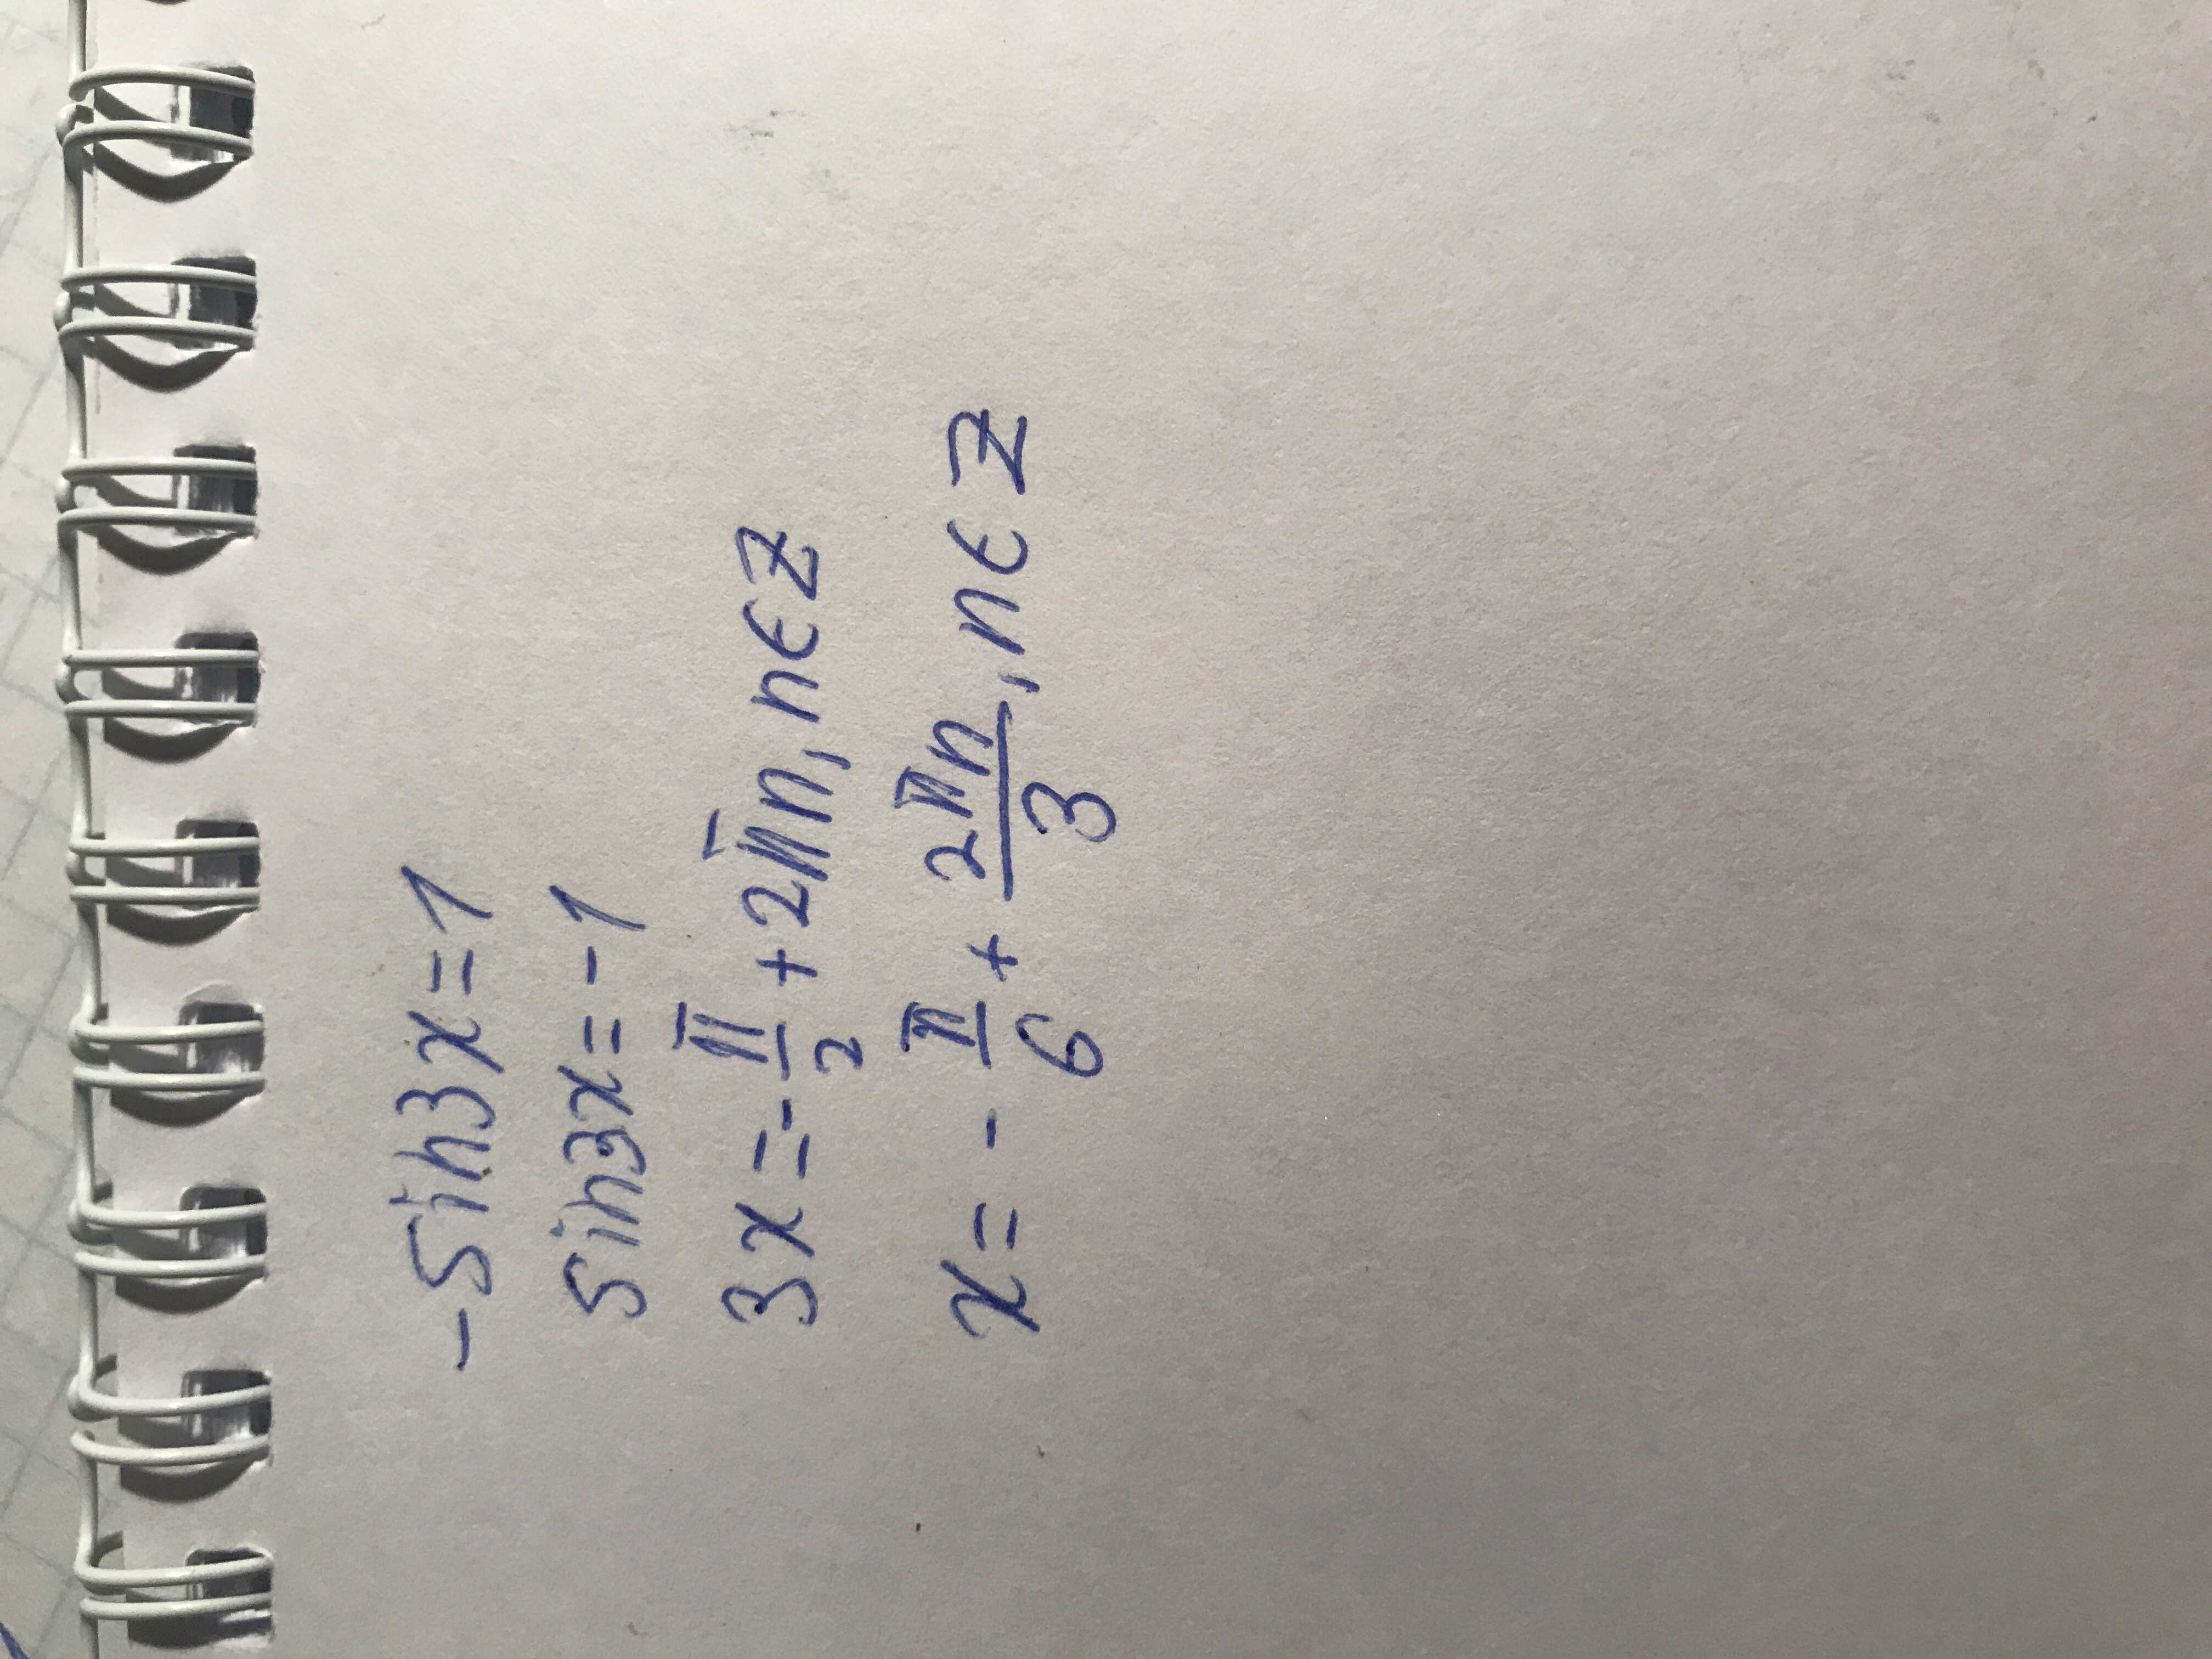 -sin3x=1
sin3x=-1
3x=-π/2+2πn, n∈Z
x=-π/6+2πn/3, n∈Z